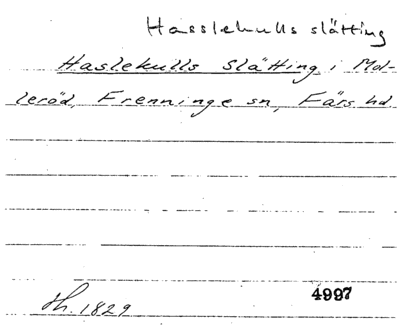 Hasslekulls slätting
Haslekulls Slätting i Mol-
leröd, Frenninge sn, Färs hd.
th. 1829
4997